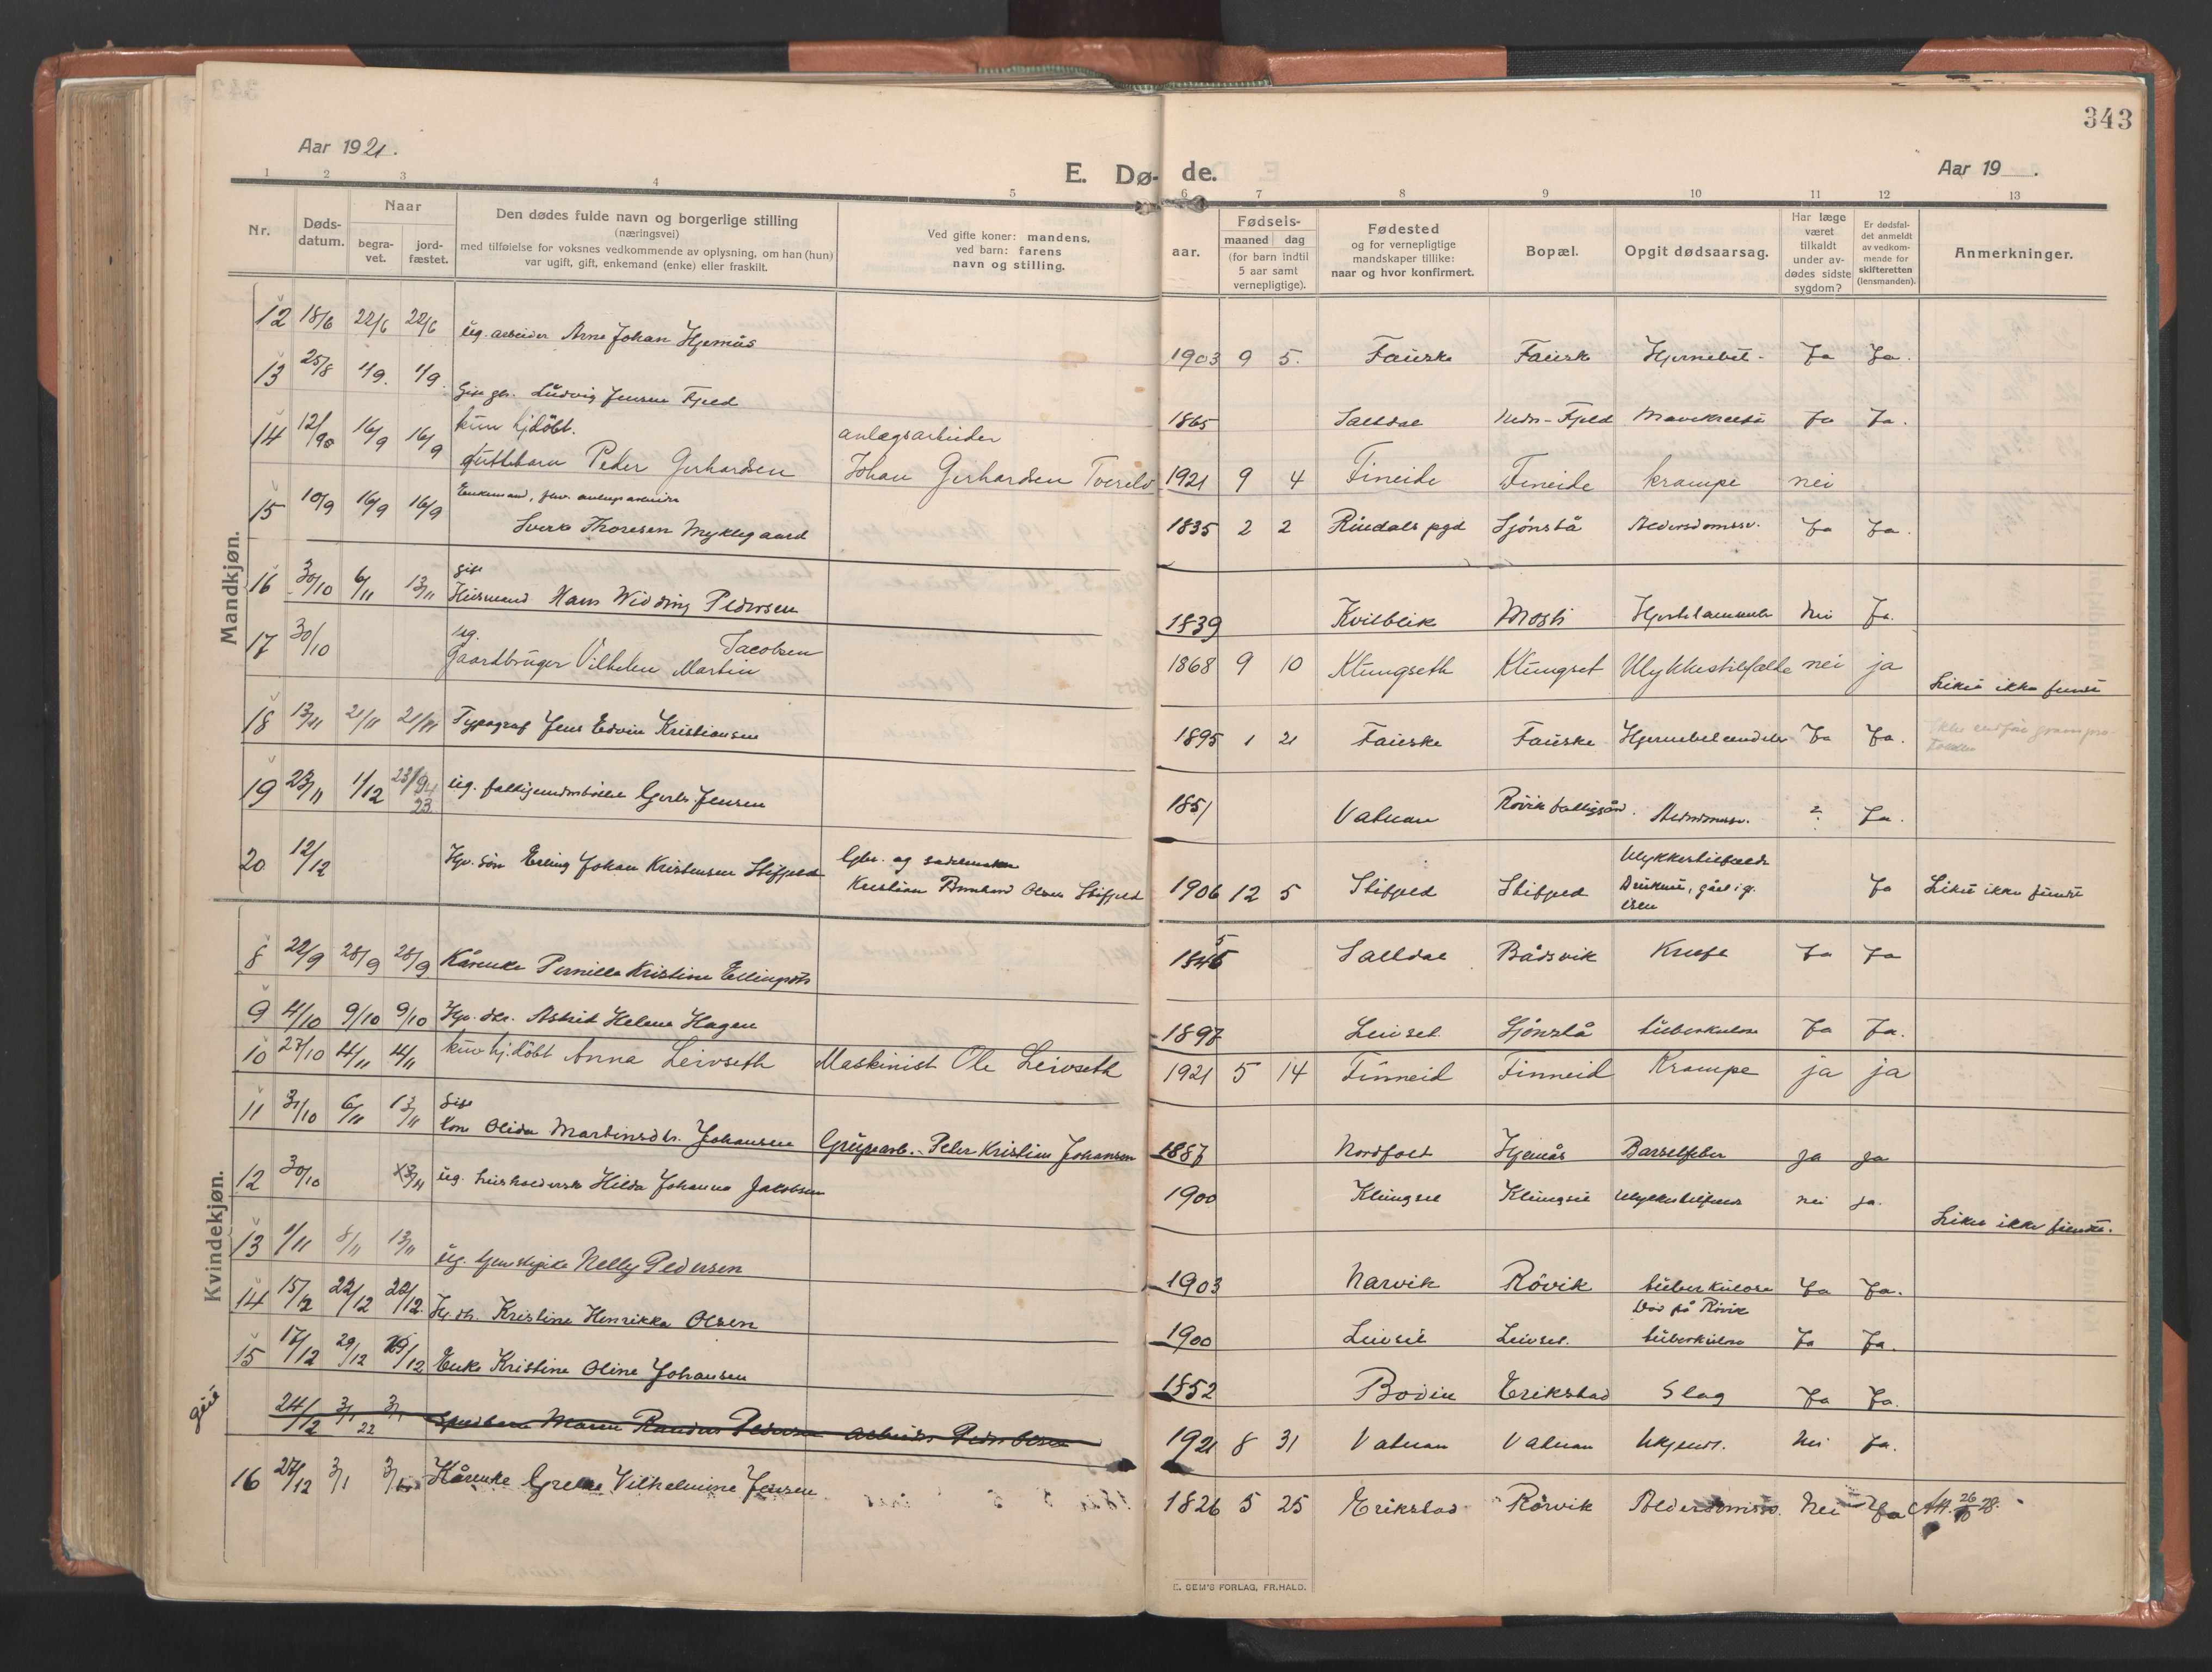 343
Aar 1921.
E. Dø- de.
Aar 19 .
1 2 3 4 5 6 7 8 9 10 11 12 13
Nr.
Døds-
datum.
Naar
begra-
vet.
jord-
fæstet.
Den dødes fulde navn og borgerlige stilling
(næringsvei)
med tilføielse for voksnes vedkommende av oplysning, om han (hun)
var ugift, gift, enkemand (enke) eller fraskilt.
Ved gifte koner: mandens,
ved barn: farens
navn og stilling.
Fødsels-
aar.
maaned dag
(for barn indtil
5 aar samt
vernepligtige).
Fødested
og for vernepligtige
mandskaper tillike:
naar og hvor konfirmert.
Bopæl.
Opgit dødsaarsag.
Har læge
været
tilkaldt
under av-
dødes sidste
sygdom?
Er dødsfal-
det anmeldt
av vedkom-
mende for
skifteretten
(lensmanden).
Anmerkninger.
Mandkjøn.
12 18/6 22/6 22/6 ug. arbeider Arne Johan Hjemås 1903 9 5. Fauske Fausk Ja Ja.
13 25/8 1/9. 1/9. Gift gbr. Ludvig Jensen Fjeld 1865 Saltdal Nedre-Fjeld Ja Ja.
14 12/90 16/9 16/9 kun hj.döbt.
guttebarn Peder Gerhardsen anlægsarbeider
Johan Gerhardsen Tverelv 1921 9 4 Fineide Fineide krampe nei
15 10/9 16/9 16/9 Enkemand,
Sverk Thoresen Myklegaard 1835 2 2 Rindals pgd Sjönstå Aldersdomssv. Ja Ja.
16 30/10 6/11 13/11 Gift
Husmand Hans Widding Pedersen 1839 Kvilblik Mosti Nei Ja.
17 30/10 ug. Jacobsen
Gaardbruger Vilhelm Martin 1868 9 10 Klungseth Klungset Ulykkestilfælde nei ja Liket ikke fundet
18 13/11 21/11 21/11 Typograf Jens Edvin Kristiansen 1895 1 21 Fauske Fauske Ja Ja.
19 23/11 1/12 23/9 23 ug. Gerh. Jensen 1851 Valnan Rövik fattiggård. Alderdomssv. ? Ja.
20 12/12 Hjv. sön Erling Johan Kristensen Stifjeld Gbr. og sadelmaker
Kristian Bernhard Olsen Stifjeld 1906 12 5 Stifjeld Stifjeld Ulykkestilfælde
Druknet, gået ig.
isen Ja Liket ikke fundet
Kvindekjøn.
8 22/9 28/9 28/9 Kårenke Pernille Kristine Ellingsds 1845 Saltdal Bådsvik Kræft Ja Ja
9 4/10 9/10 9/10 Hjv. dtr. Astrid Helene Hagen 1897 Leivset Sjönstå tuberkulose Ja Ja.
10 27/10 4/11 4/11 kun hj.döbt Anna Leivseth Maskinist Ole Leivseth 1921 5 14 Finneid Finneid Krampe ja ja
11 31/10 6/11 13/11 Gift
Kone Olida Martinsdtr. Johansen Grubearb. Peter Kristian Johansen 1887 Nordfold Hjemås Barselfeber ja ja
12 30/10 13/11 ug. husholderske Hilda Johanne Jakobsen 1900 Klungset Klungset Ulykkestilfælde nei ja. Liket ikke fundet.
13 1/11 8/11 13/11 ug. tjenestpike Nelly Pedersen 1903 Narvik Rövik tuberkulose Ja Ja.
14 15/12 22/12 22/12. Hj. dtr. Kristine Henrikka Olsen 1900 Leivset Leivset. Död på Rövik
tuberkulose Ja Ja.
15 17/12 29/12 29/12 Enke Kristine Oline Johansen 1852 Bodin Erikstad Slag Ja Ja.
24/12 3/1 22 3/1 Spedbarn Marie Randine Pedersen Arbeider Peder Olsen 1921 8 31 Valnan Valnan Ukjendt. Nei Ja.
16 27/12 3/1 3/1 Kårenke Grethe Vilhelmine Jensen 1826 5 25 Erikstad Rörvik Alderdomssv. Nei Ja Att. 26/10 28.
E. SEM'S FORLAG, FR.HALD.